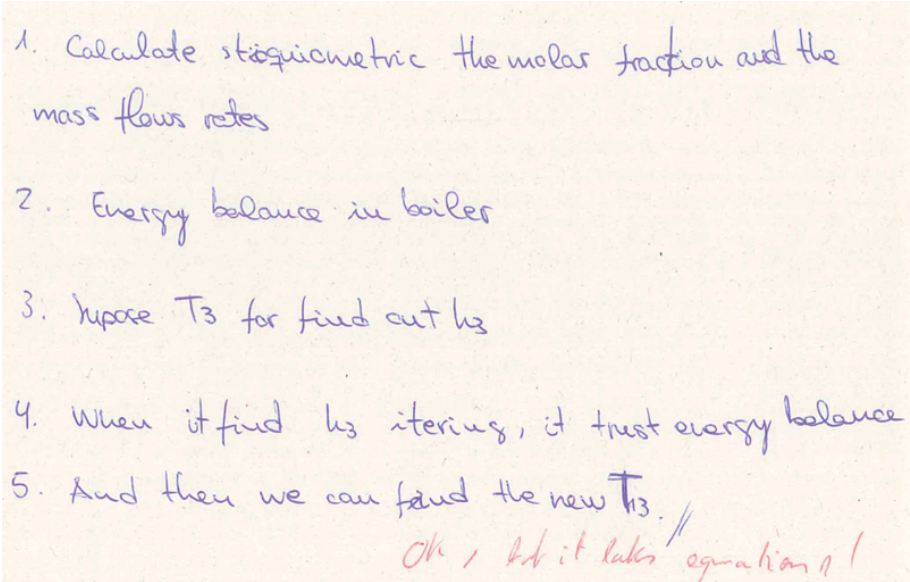 1. Calculate stoiquiometric the molar fraction and the
mass flows rates
2. Energy balance in boiler
3. Supose T3 for find out h3
4. When it find h3 itering, it trust energy balance
5. And then we can faind the new T3.
Ok, but it lacks equations!